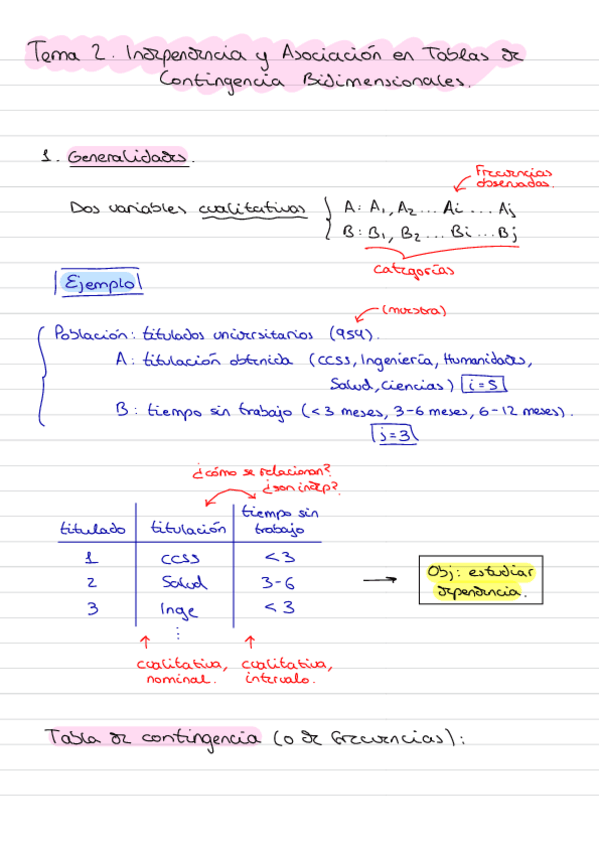 Tema 2. Independencia y Asociación en Tablas de
Contingencia Bidimensionales.
1. Generalidades.
Frecuencias
observadas.
Dos variables cualitativas { A: A1, A2 ... Ai ... Aj
B: B1, B2 ... Bi ... Bj
categorías
Ejemplo
(muestra)
Población: titulados universitarios (954).
A: titulación obtenida (CCSS, Ingeniería, Humanidades,
Salud, Ciencias) i=5
B: tiempo sin trabajo (<3 meses, 3-6 meses, 6-12 meses).
j=3
¿cómo se relacionan?
¿son indep?
titulado titulación tiempo sin
trabajo
1 CCSS <3
2 Salud 3-6
3 Inge <3
⋮
→ Obj: estudiar
dependencia.
↑ cualitativa,
nominal.
↑ cualitativa,
intervalo.
Tabla de contingencia (o de frecuencias):